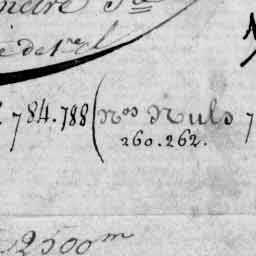 de 1re cl
784.788 (Nos Nuls 7
260.262.
2500m